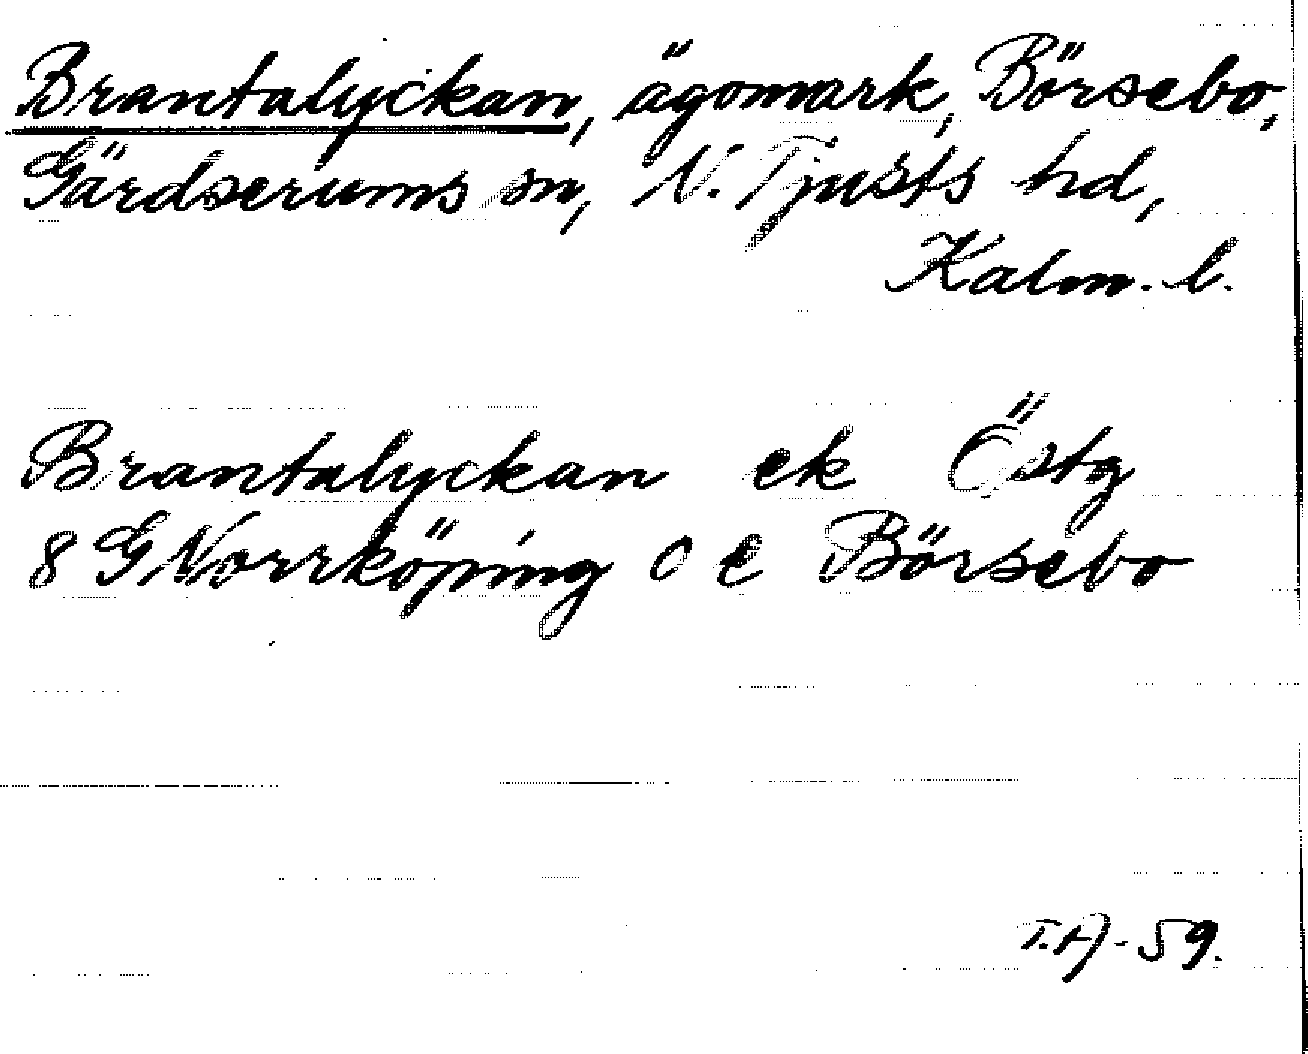 Brantalyckan, ägomark, Börsebo,
Gärdserums sn, N. Tjusts hd,
Kalm. l.
Brantalyckan ek Östg
8 G Norrköping 0 e Börsebo
T.A-59.